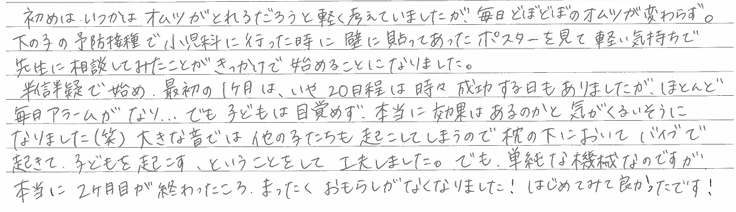 初めは いつかは オムツがとれるだろうと軽く考えていましたが、毎日どぼどぼのオムツが変わらず。
下の子の予防接種で小児科に行った時に 壁に貼ってあったポスターを見て 軽い気持ちで
先生に相談してみたことがきっかけで 始めることになりました。
半信半疑で始め、最初の1ヶ月は、いや、20日程は時々成功する日もありましたが、ほとんど
毎日アラームがなり… でも 子どもは目覚めず、本当に効果はあるのかと 気がくるいそうに
なりました(笑) 大きな音では 他の子たちも起こしてしまうので 枕の下において バイブで
起きて、子どもを起こす、ということをして 工夫しました。でも、単純な機械なのですが
本当に 2ヶ月目が終わったころ、まったく おもらしがなくなりました! はじめてみて良かったです!